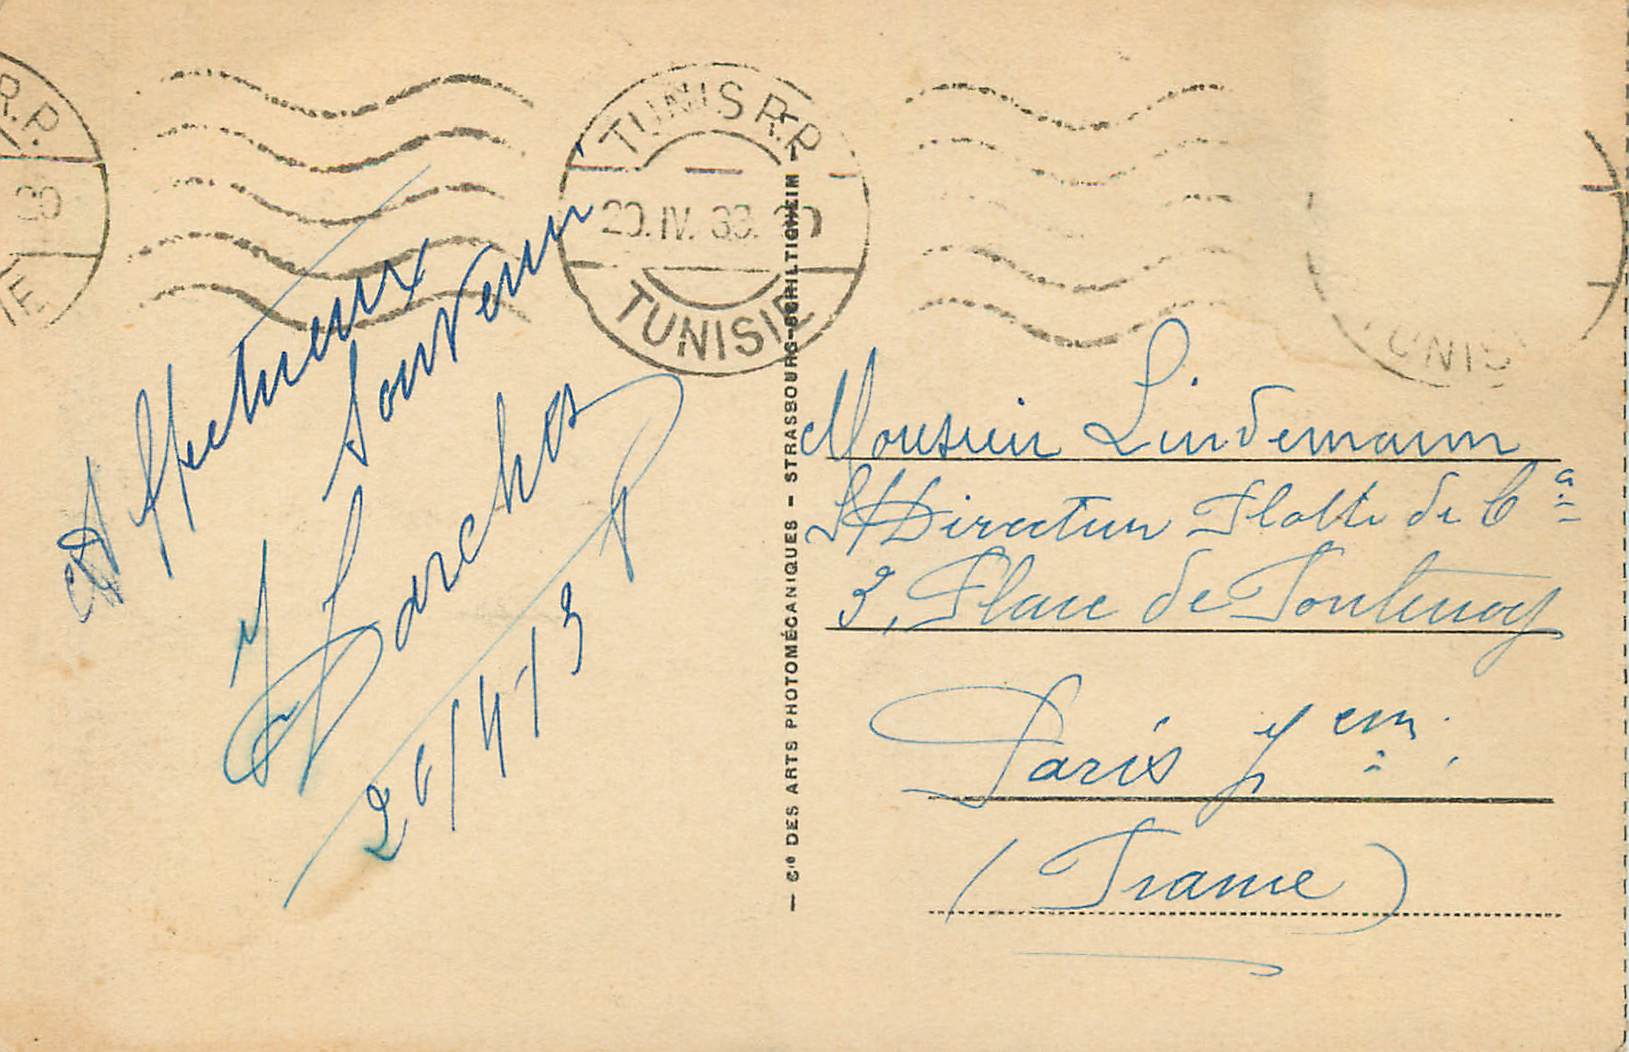 R.P.
TUNIS R.P.
20.IV.33.
TUNISIE
TUNIS
Affectueux
Souvenir
Darchos
26/4-13
— Cie DES ARTS PHOTOMÉCANIQUES – STRASBOURG-SCHILTIGHEIM —
Monsieur Lindemann
S/Directeur Flotte de Cie
3, Place de Fontenoy
Paris 7em
(France)